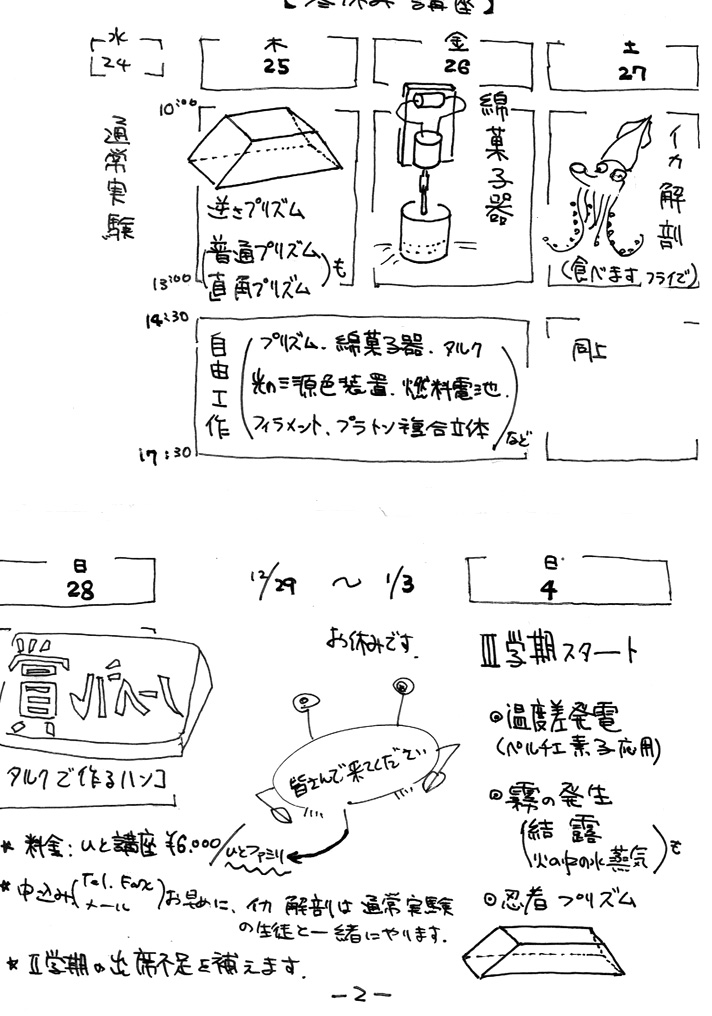 講座】
水
24
木
25
金
26
土
27
通常実験
10:00
13:00
逆さプリズム
(普通プリズム
直角プリズム)も
綿菓子器
イカ解剖
(食べます、フライで)
14:30
17:30
自由工作
(プリズム、綿菓子器、タルク
光の三源色装置、燃料電池、
フィラメント、プラトン複合立体)など
同上
日
28
12/29 〜 1/3
日
4
お休みです.
皆さんで来てください
タルクで作るハンコ
Ⅲ学期スタート
◎温度差発電
(ペルチェ素子応用)
◎霧の発生
(結露
火の中の水蒸気)も
◎忍者プリズム
* 料金:ひと講座 ¥6.000/ひとファミリ
* 申込み(Tel. Fax メール)お早めに、イカ解剖は通常実験
の生徒と一緒にやります.
* Ⅱ学期の出席不足を補えます.
-2-